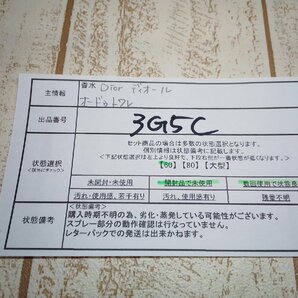 主情報
香水 Dior ディオール
オードゥトワレ
出品番号
3G5C
セット商品の場合は多数の状態選択となります。
個別情報は状態備考に記載します。
状態選択
<該当にチェック>
<下記状態選択は左上より良好で、下段右側が一番状態が低くなります>
【60】【80】【大型】
未開封・未使用 開封品で未使用 数回使用で状態良
汚れ・使用感、若干有り 汚れ、使用感有り 残量不明
状態備考
<状態備考>
購入時期不明の為、劣化・蒸発している可能性がございます。
スプレー部分の動作確認は行なっていません。
レターパックでの発送は出来かねます。